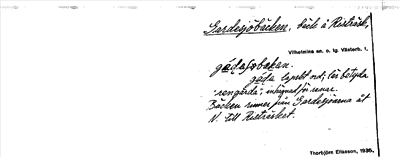 Gardesjöbäcken, bäck å Risträsk,
Vilhelmina sn. o. tg. Västerb. l.
gáɖasjobɛkan.
gáɖa lapskt ord; lär betyda
"rengärda", inhägnad för renar.
Bäcken rinner från Gardesjöarna åt
N. till Risträsket.
Thorbjörn Eliasson, 1936.